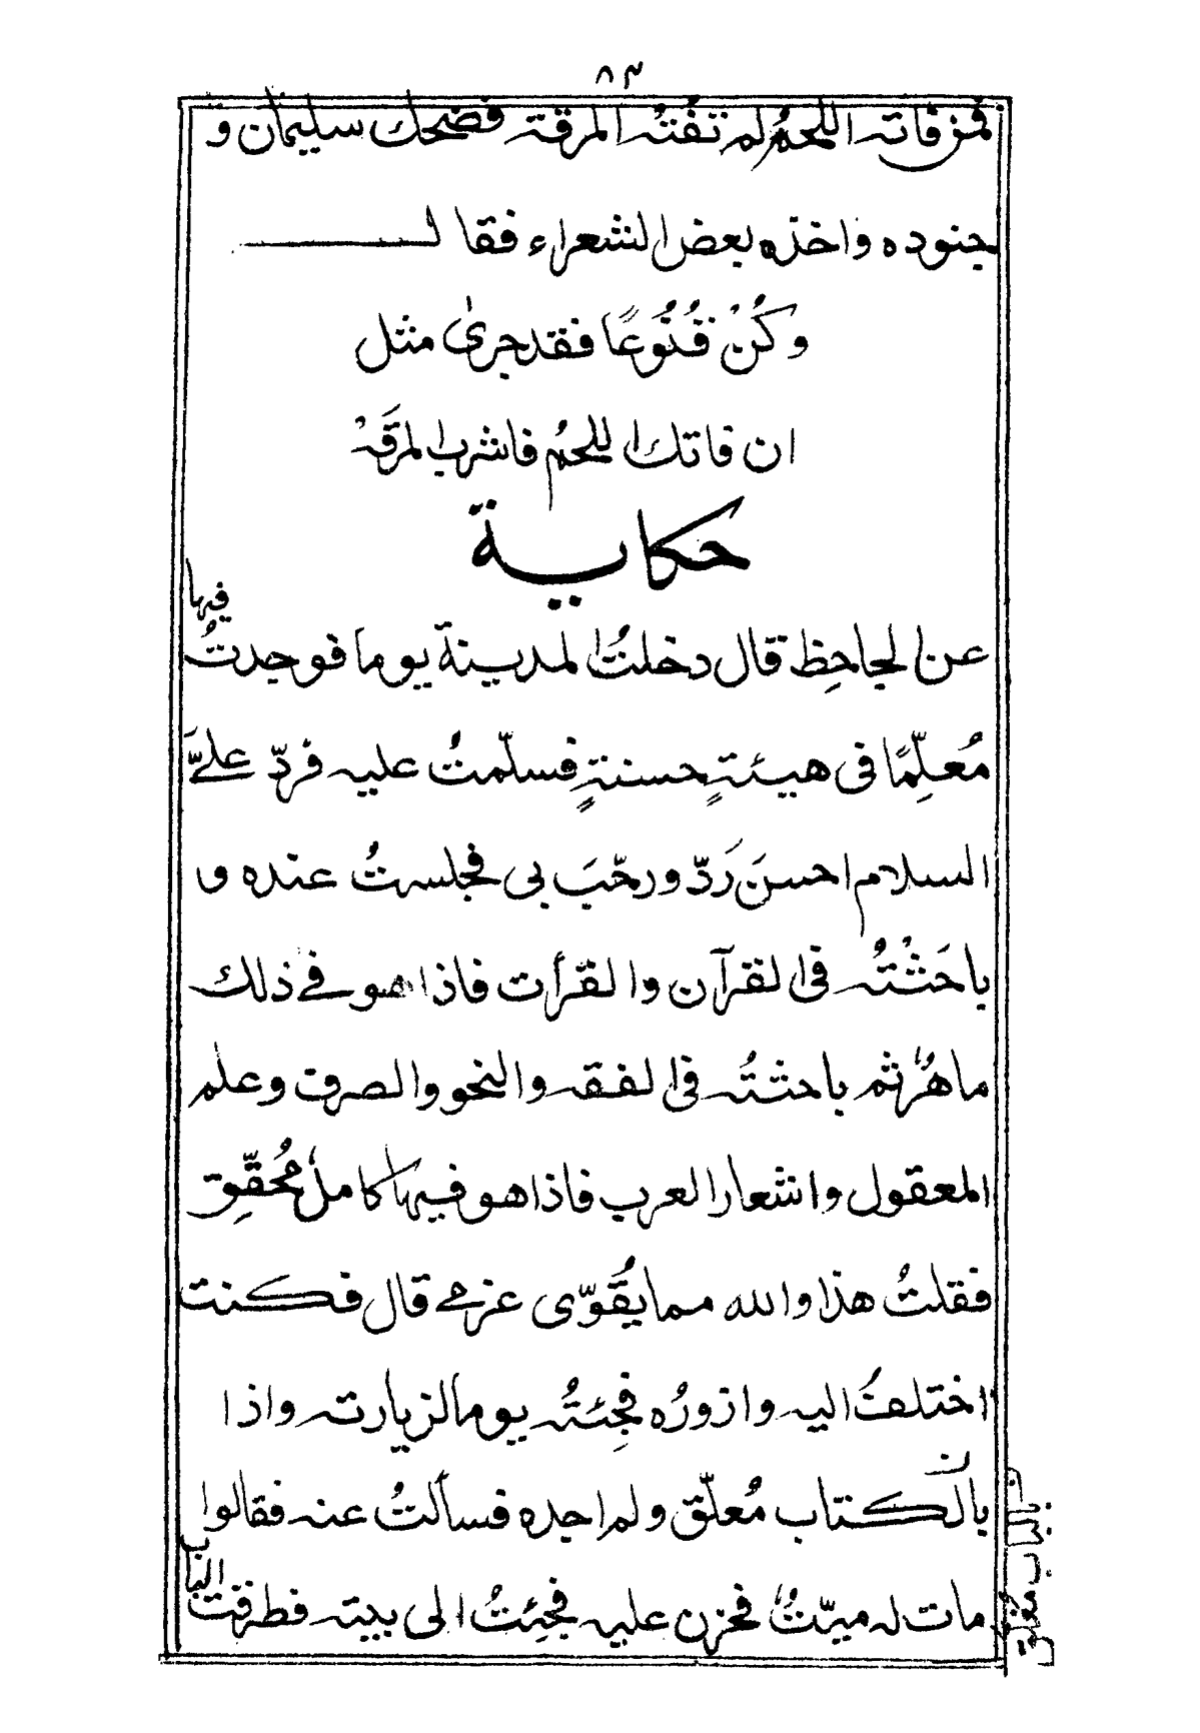 ٨٣
فمن فاته اللحم لم تفته المرقة فضحك سليمان و
جنوده واخذه بعض الشعراء فقال
وكُنْ قُنُوعًا فقد جرىٰ مثل
ان فاتك اللحمُ فاشرب المرقَهْ
حكاية
عن الجاحِظ قال دخلتُ المدينة يوما فوجدتُ فيها
مُعلِّمًا فى هيئةٍ حسنةٍ فسلّمتُ عليه فردّ علىَّ
السلام احسنَ رَدّ ورحّبَ بى فجلستُ عنده و
باحَثْتُه فى القرآن والقرأت فاذا هو فى ذلك
ماهرٌ ثم باحثتُه فى الفقه والنحو والصرف وعلم
المعقول واشعار العرب فاذا هو فيها كاملٌ مُحقِّق
فقلتُ هذا والله مما يُقوّى عزمى قال فكنت
اختلفُ اليه وازورُه فجِئتُه يوما لزيارته واذا
بالكتاب مُعلّق ولم اجده فسألتُ عنه فقالوا
مات له ميّتٌ فحزن عليه فجِئتُ الى بيته فطرقت الباب
بالباب مُغلق